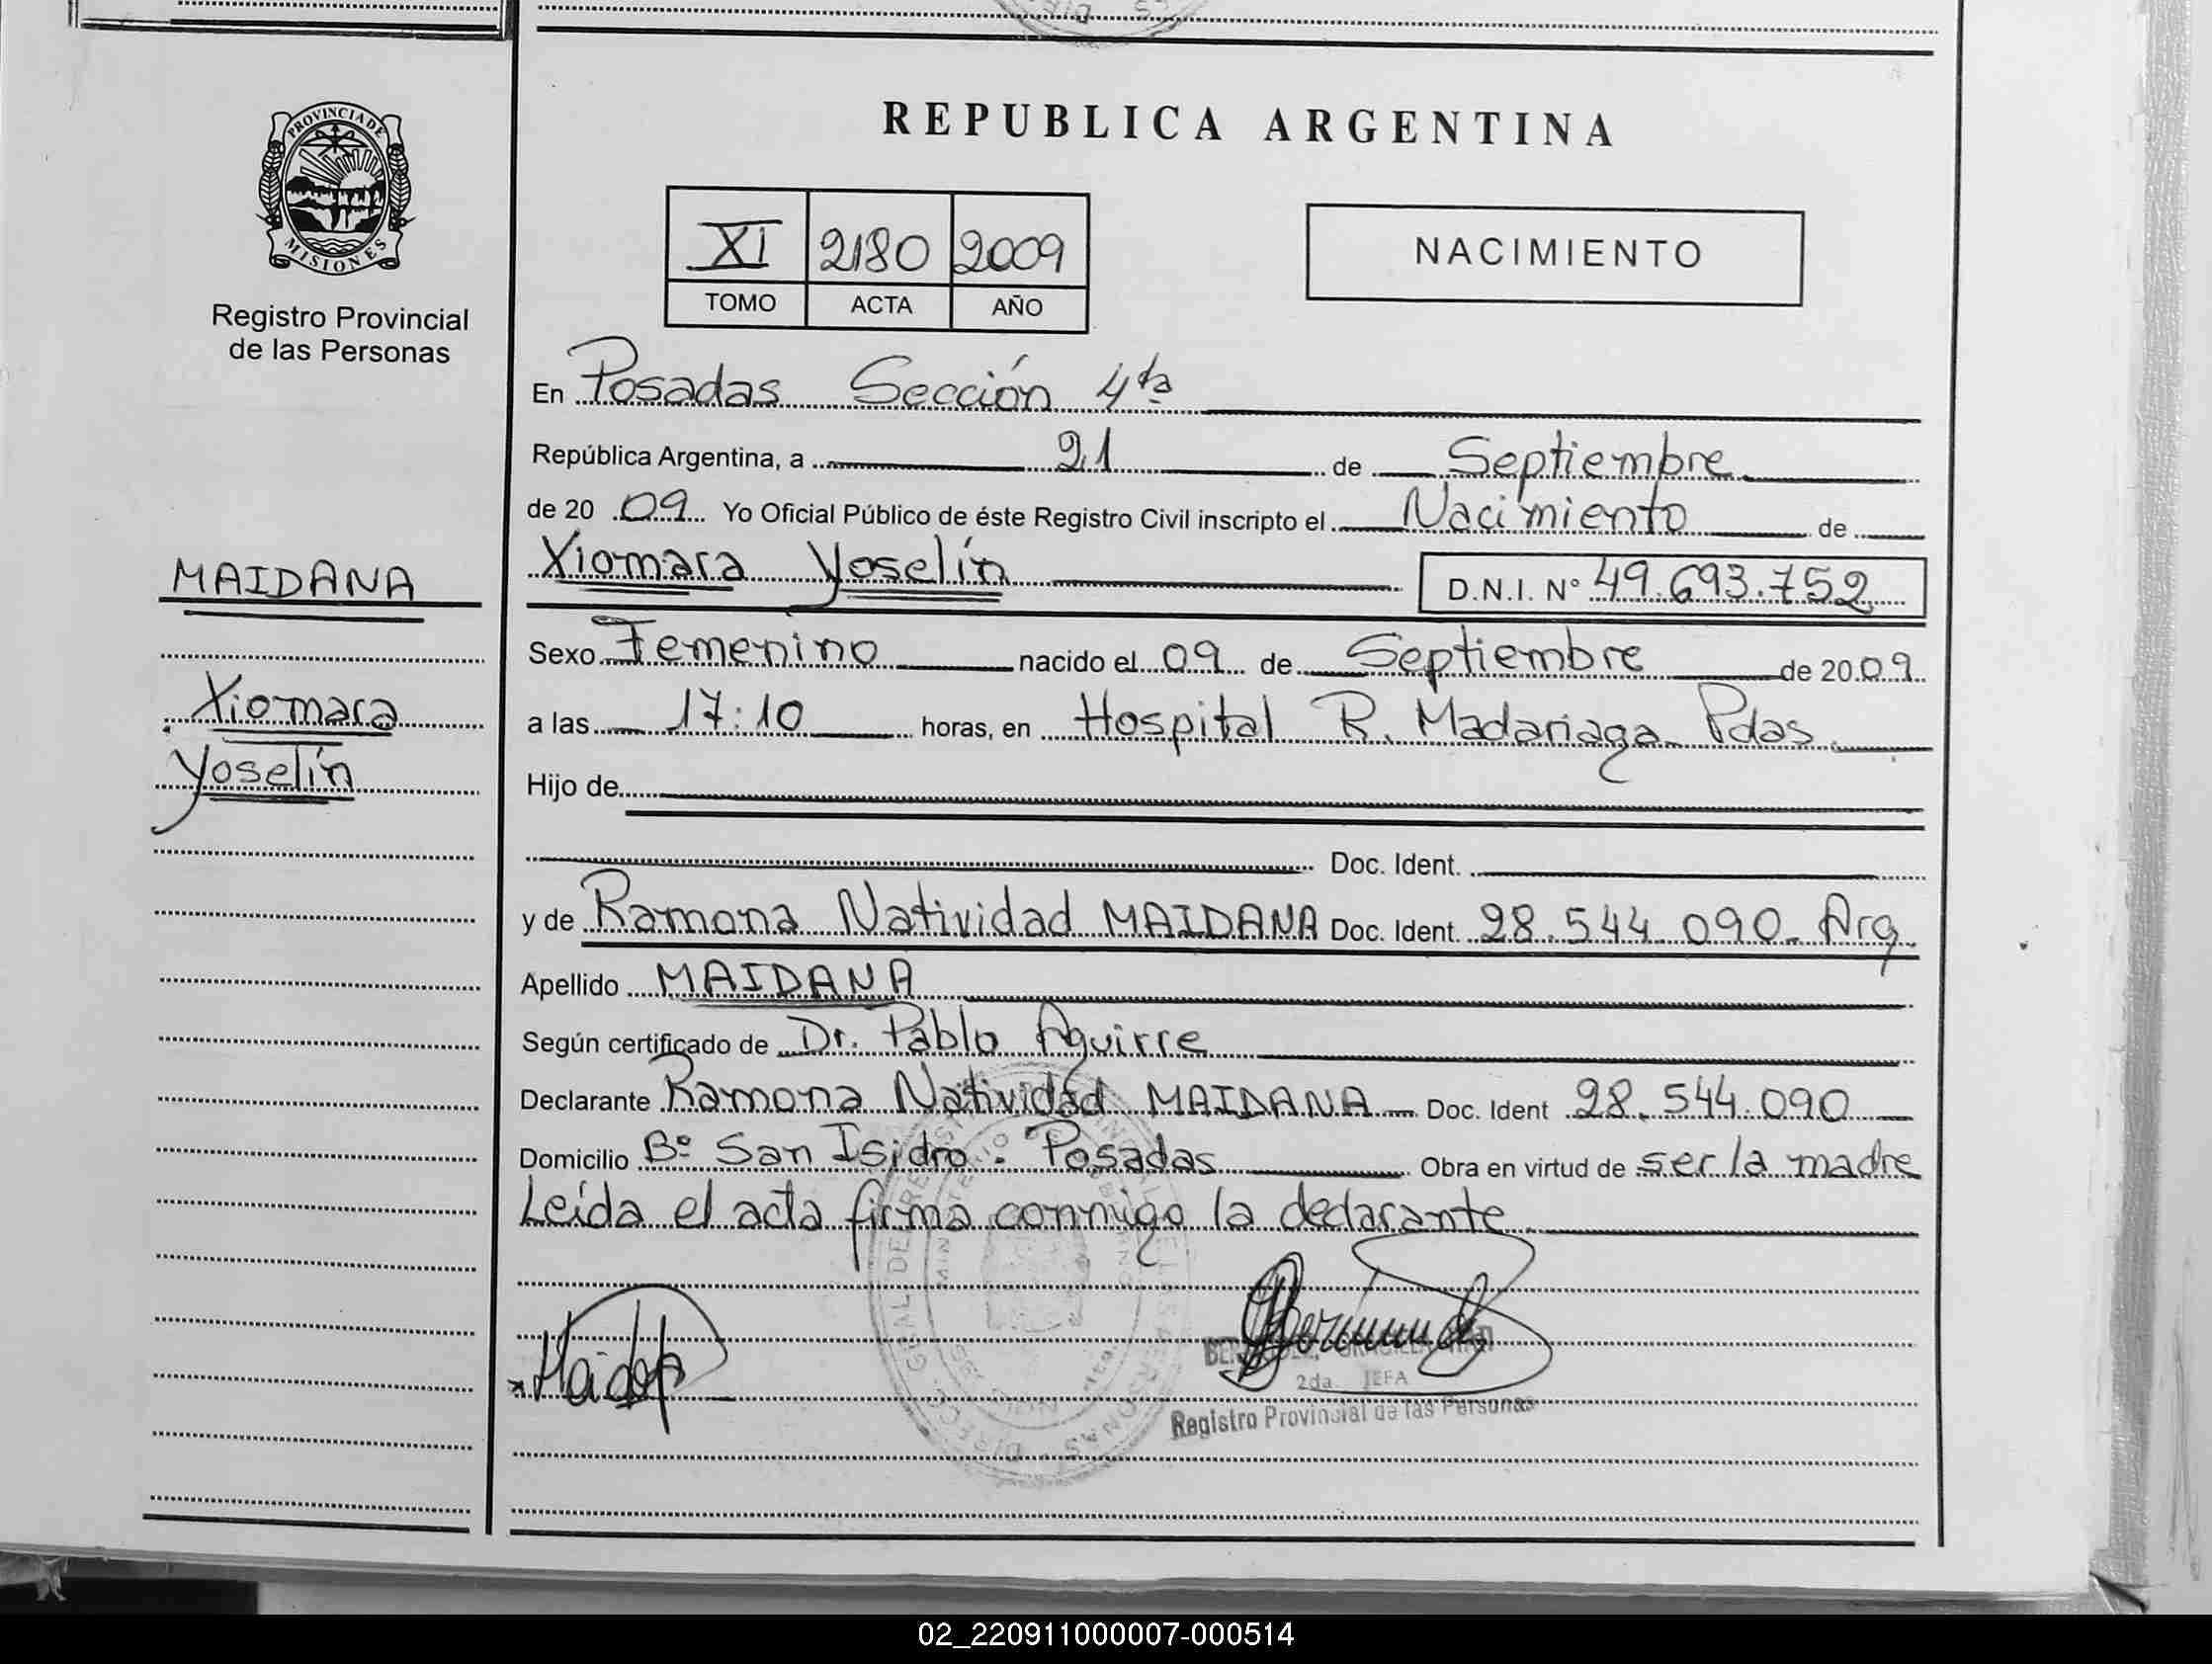 REPUBLICA ARGENTINA
PROVINCIA DE
MISIONES
Registro Provincial
de las Personas
XI 2180 2009
TOMO ACTA AÑO
NACIMIENTO
En Posadas Sección 4ta
República Argentina, a 21 de Septiembre
de 20 09 Yo Oficial Público de éste Registro Civil inscripto el Nacimiento de
Xiomara Yoselín D.N.I. N° 49.693.752
MAIDANA
Xiomara
Yoselín
Sexo Femenino nacido el 09 de Septiembre de 2009
a las 17:10 horas, en Hospital R. Madariaga Pdas.
Hijo de
Doc. Ident.
y de Ramona Natividad MAIDANA Doc. Ident. 28.544.090 - Arg.
Apellido MAIDANA
Según certificado de Dr. Pablo Aguirre
Declarante Ramona Natividad MAIDANA Doc. Ident 28.544.090
Domicilio B° San Isidro. Posadas Obra en virtud de ser la madre
Leída el acta firma conmigo la declarante.
2da JEFA
Registro Provincial de las Personas
02_220911000007-000514